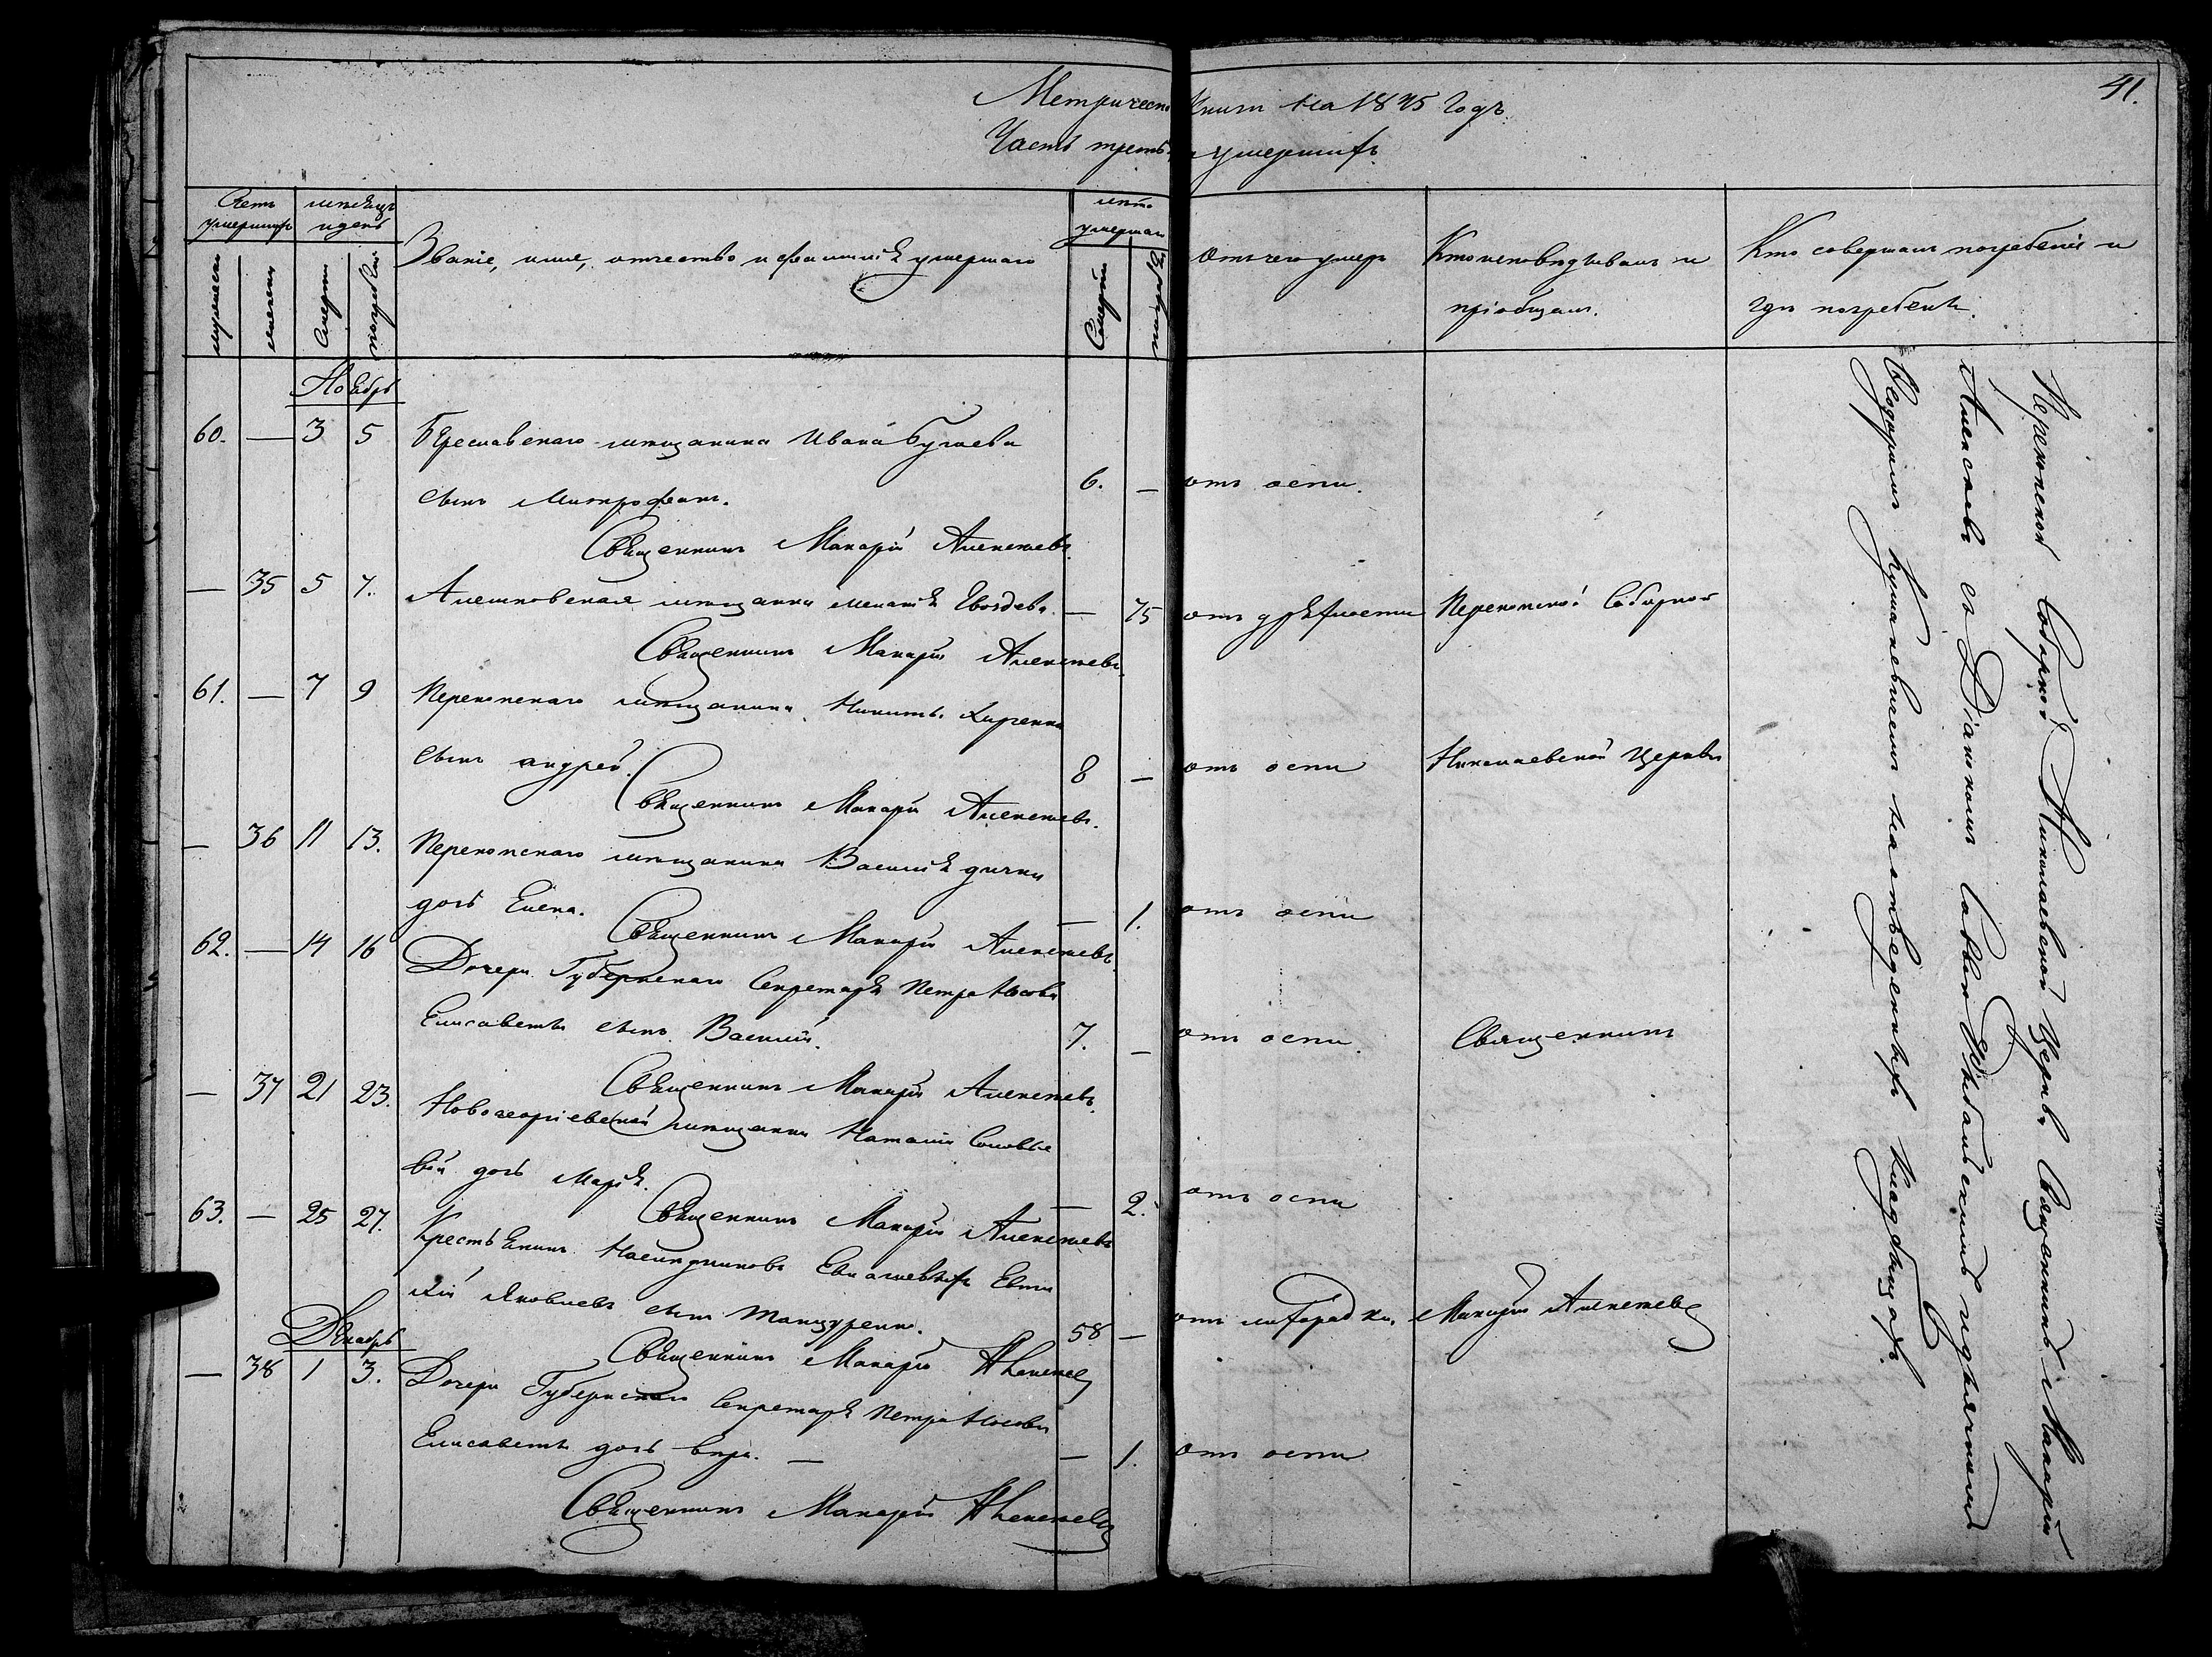 41.
Метрической Книги на 1845 годъ.
Часть третья умершихъ.
Счетъ умершихъ
мужеска
женска
месяцъ и день
Смерти
погребенія
Званіе, имя, отчество и фамилія умершаго
лета умершаго
Отъ чего умеръ
Кто исповедывалъ и
пріобщалъ.
Кто совершалъ погребеніе и
где погребенъ.
Ноябрь
60. — 3 5 Береславскаго мещанина Ивана Бугаева
сынъ Митрофанъ. 6. — отъ оспы.
Священникъ Макарій Алексеевъ.
— 35 5 7. Алешковская мещанка Меланія Гвоздева. — 75 отъ дряхлости Перекопской Соборной
Священникъ Макарій Алексеевъ.
61. — 7 9 Перекопскаго мещанина Никиты
сынъ андрей. 8 — отъ оспы Николаевской Церкви
Священникъ Макарій Алексеевъ.
— 36 11 13. Перекопскаго мещанина Василія
дочь Елена. — 1. отъ оспы
Священникъ Макарій Алексеевъ.
62. — 14 16 Дочери Губернскаго Секретаря Петра Носова
Елисаветы сынъ Василій. 7. — отъ оспы. Священникъ
Священникъ Макарій Алексеевъ.
— 37 21 23. Новогеоргіевской мещанки Наталіи Соловье
вой дочь Марія. — 2. отъ оспы
Священникъ Макарій Алексеевъ
63. — 25 27. Крестьянинъ Наследниковъ Евти
хій Яковлевъ сынъ 58 — отъ Макарій Алексеевъ
Священникъ Макарій Алексеевъ
Декабрь
— 38 1 3. Дочери Губернскаго Секретаря Петра Носова
Елисаветы дочь вера. — — 1. отъ оспы
Священникъ Макарій Алексеевъ
Перекопской Соборной Николаевской Церкви Священникъ Макарій
Алексеевъ съ Діакономъ и дьячкомъ
на отведенныхъ кладбищахъ.